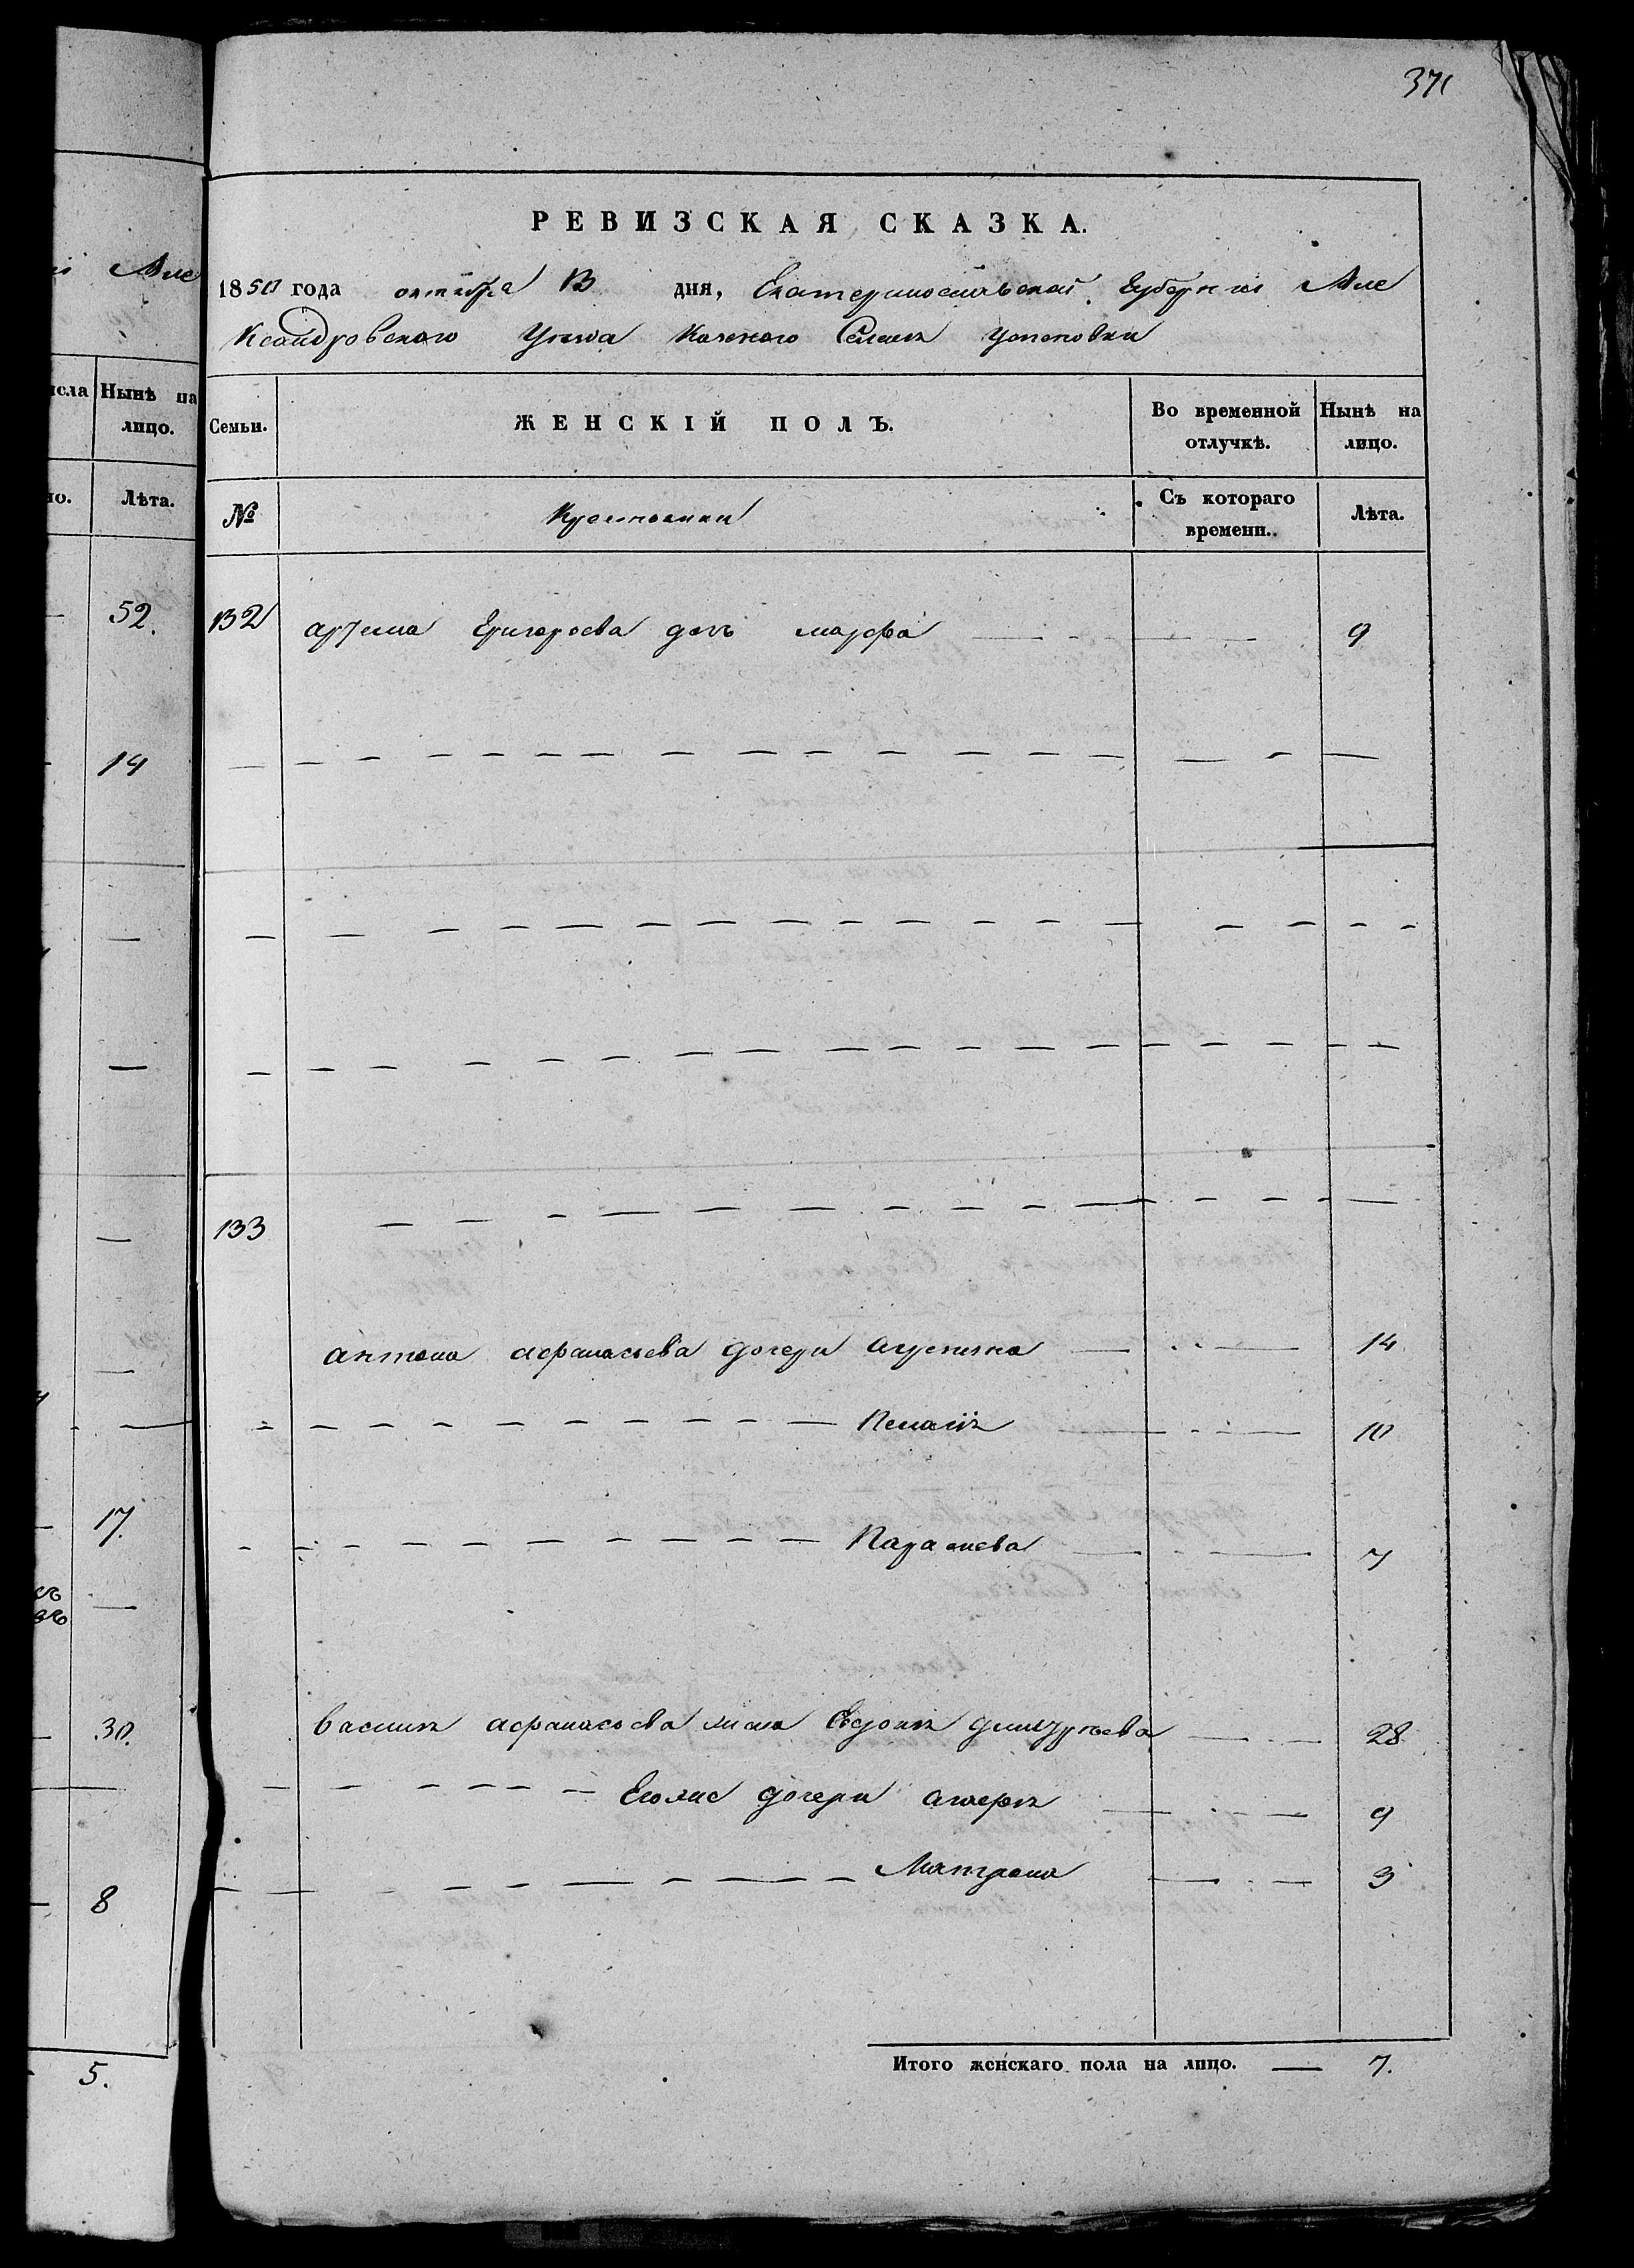 371
РЕВИЗСКАЯ СКАЗКА.
1850 года октября 13 дня, Екатеринославской Губернии Але
ксандровского Уезда Казенного Селения Успеновки
Семьи. ЖЕНСКІЙ ПОЛЪ. Во временной отлучкѣ. Нынѣ на лицо.
№ Крестьянки Съ котораго времени. Лѣта.
132 Артема Григорьева дочь марфа 9
133
антона афанасьева дочери агрепина 14
Пелагія 10
Параскева 7
василия афанасьева жена Евдокия дмитриева 28
Его же дочери агафія 9
Матрона 3
Итого женскаго пола на лицо. — 7.
Але
Нынѣ на
лицо.
Лѣта.
52.
14
17.
30.
8
5.